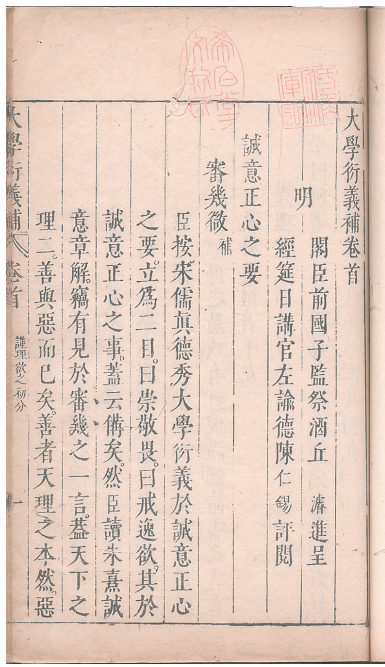 大學衍義補卷首
明　閣臣前國子監祭酒丘　濬進呈
經筵日講官左諭德陳仁錫評閱
誠意正心之要
審幾微補
臣按宋儒真德秀大學衍義於誠意正心
之要立為二目曰崇敬畏曰戒逸欲其於
誠意正心之事蓋云備矣然臣讀朱熹誠
意章解竊有見於審幾之一言蓋天下之
理二善與惡而已矣善者天理之本然惡
謹理欲之初分
大學衍義補　卷首　一